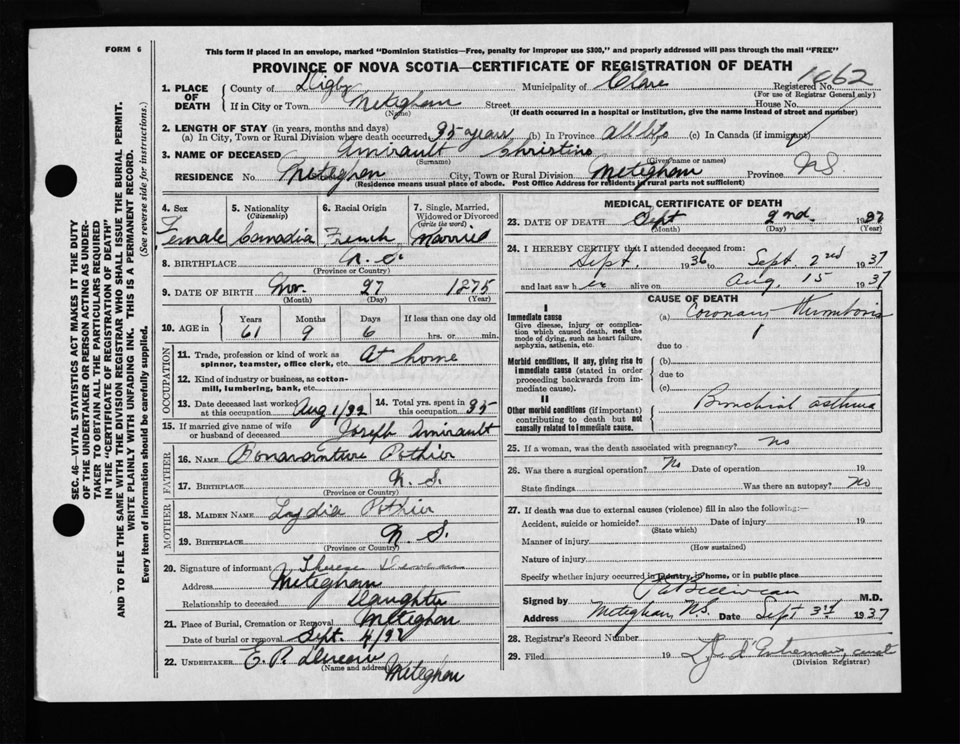 FORM 6
This form if placed in an envelope, marked "Dominion Statistics—Free, penalty for improper use $300," and properly addressed will pass through the mail "FREE"
PROVINCE OF NOVA SCOTIA—CERTIFICATE OF REGISTRATION OF DEATH
1. PLACE OF DEATH
County of Digby Municipality of Clare Registered No. 1662
(For use of Registrar General only)
If in City or Town Meteghan Street House No.
(Name) (If death occurred in a hospital or institution, give the name instead of street and number)
2. LENGTH OF STAY (in years, months and days)
(a) In City, Town or Rural Division where death occurred 35 years (b) In Province all life (c) In Canada (if immigrant)
3. NAME OF DECEASED Amirault Christine
(Surname) (Given name or names)
RESIDENCE No. Meteghan City, Town or Rural Division Meteghan Province N.S.
(Residence means usual place of abode. Post Office Address for residents in rural parts not sufficient)
4. Sex Female
5. Nationality (Citizenship) Canadia
6. Racial Origin French
7. Single, Married, Widowed or Divorced (Write the word) Married
8. BIRTHPLACE N.S.
(Province or Country)
9. DATE OF BIRTH Nov. 27 1875
(Month) (Day) (Year)
10. AGE in Years Months Days If less than one day old
61 9 6 hrs. or min.
OCCUPATION
11. Trade, profession or kind of work as spinner, teamster, office clerk, etc. At home
12. Kind of industry or business, as cotton-mill, lumbering, bank, etc.
13. Date deceased last worked at this occupation Aug 1/
14. Total yrs. spent in this occupation 35
15. If married give name of wife or husband of deceased Joseph Amirault
FATHER
16. NAME Bonaventure Pothier
17. BIRTHPLACE N.S.
(Province or Country)
MOTHER
18. MAIDEN NAME Lydia Pothier
19. BIRTHPLACE N.S.
(Province or Country)
20. Signature of informant Therese
Address Meteghan
Relationship to deceased Daughter
21. Place of Burial, Cremation or Removal Meteghan
Date of burial or removal Sept. 4/
22. UNDERTAKER E. P.
(Name and address) Meteghan
MEDICAL CERTIFICATE OF DEATH
23. DATE OF DEATH Sept 2nd. 1937
(Month) (Day) (Year)
24. I HEREBY CERTIFY that I attended deceased from:
Sept. 1936 to Sept. 2nd 1937
and last saw her alive on Aug. 15 1937
CAUSE OF DEATH
I
Immediate cause
Give disease, injury or complication which caused death, not the mode of dying, such as heart failure, asphyxia, asthenia, etc.
(a) Coronary thrombosis
due to
Morbid conditions, if any, giving rise to immediate cause (stated in order proceeding backwards from immediate cause).
(b)
due to
(c)
II
Other morbid conditions (if important) contributing to death but not causally related to immediate cause.
Bronchial asthma
25. If a woman, was the death associated with pregnancy? No
26. Was there a surgical operation? No Date of operation 19
State findings Was there an autopsy? No
27. If death was due to external causes (violence) fill in also the following:—
Accident, suicide or homicide? Date of injury 19
(State which)
Manner of injury
(How sustained)
Nature of injury
Specify whether injury occurred in industry, in home, or in public place
Signed by M.D.
Address Meteghan N.S. Date Sept 3rd 1937
28. Registrar's Record Number
29. Filed 19
(Division Registrar)
SEC. 46—VITAL STATISTICS ACT MAKES IT THE DUTY
OF THE UNDERTAKER OR PERSON ACTING AS UNDER-
TAKER TO OBTAIN ALL THE PARTICULARS REQUIRED
IN THE "CERTIFICATE OF REGISTRATION OF DEATH"
AND TO FILE THE SAME WITH THE DIVISION REGISTRAR WHO SHALL ISSUE THE BURIAL PERMIT.
WRITE PLAINLY WITH UNFADING INK. THIS IS A PERMANENT RECORD.
Every item of information should be carefully supplied. (See reverse side for instructions.)